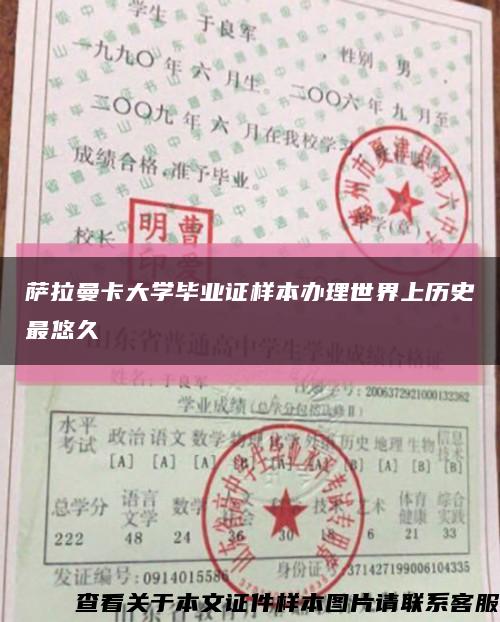 学生 于良军 ，性别 男 ，
一九九〇 年 六 月生。二〇〇六 年 九 月至
二〇〇九 年 六 月在我校学习
成绩合格,准予毕业。
校长
曹爱明印
萨拉曼卡大学毕业证样本办理世界上历史
最悠久
山东省普通高中学生学业成绩合格证
姓名:于良军 注册学号:2006372921000132362
学业成绩
水平考试 政治 语文 数学 物理 化学 外语 历史 地理 生物 信息技术
[A] [A] [A] [B] [A] [A] [B] [A] [B] [B]
总学分 语言文学 数学 技术 艺术 体育健康 综合实践
222 48 24 36 30 18 6 21 33
发证编号:0914015586 身份证号:371427199006104335
查看关于本文证件样本图片请联系客服